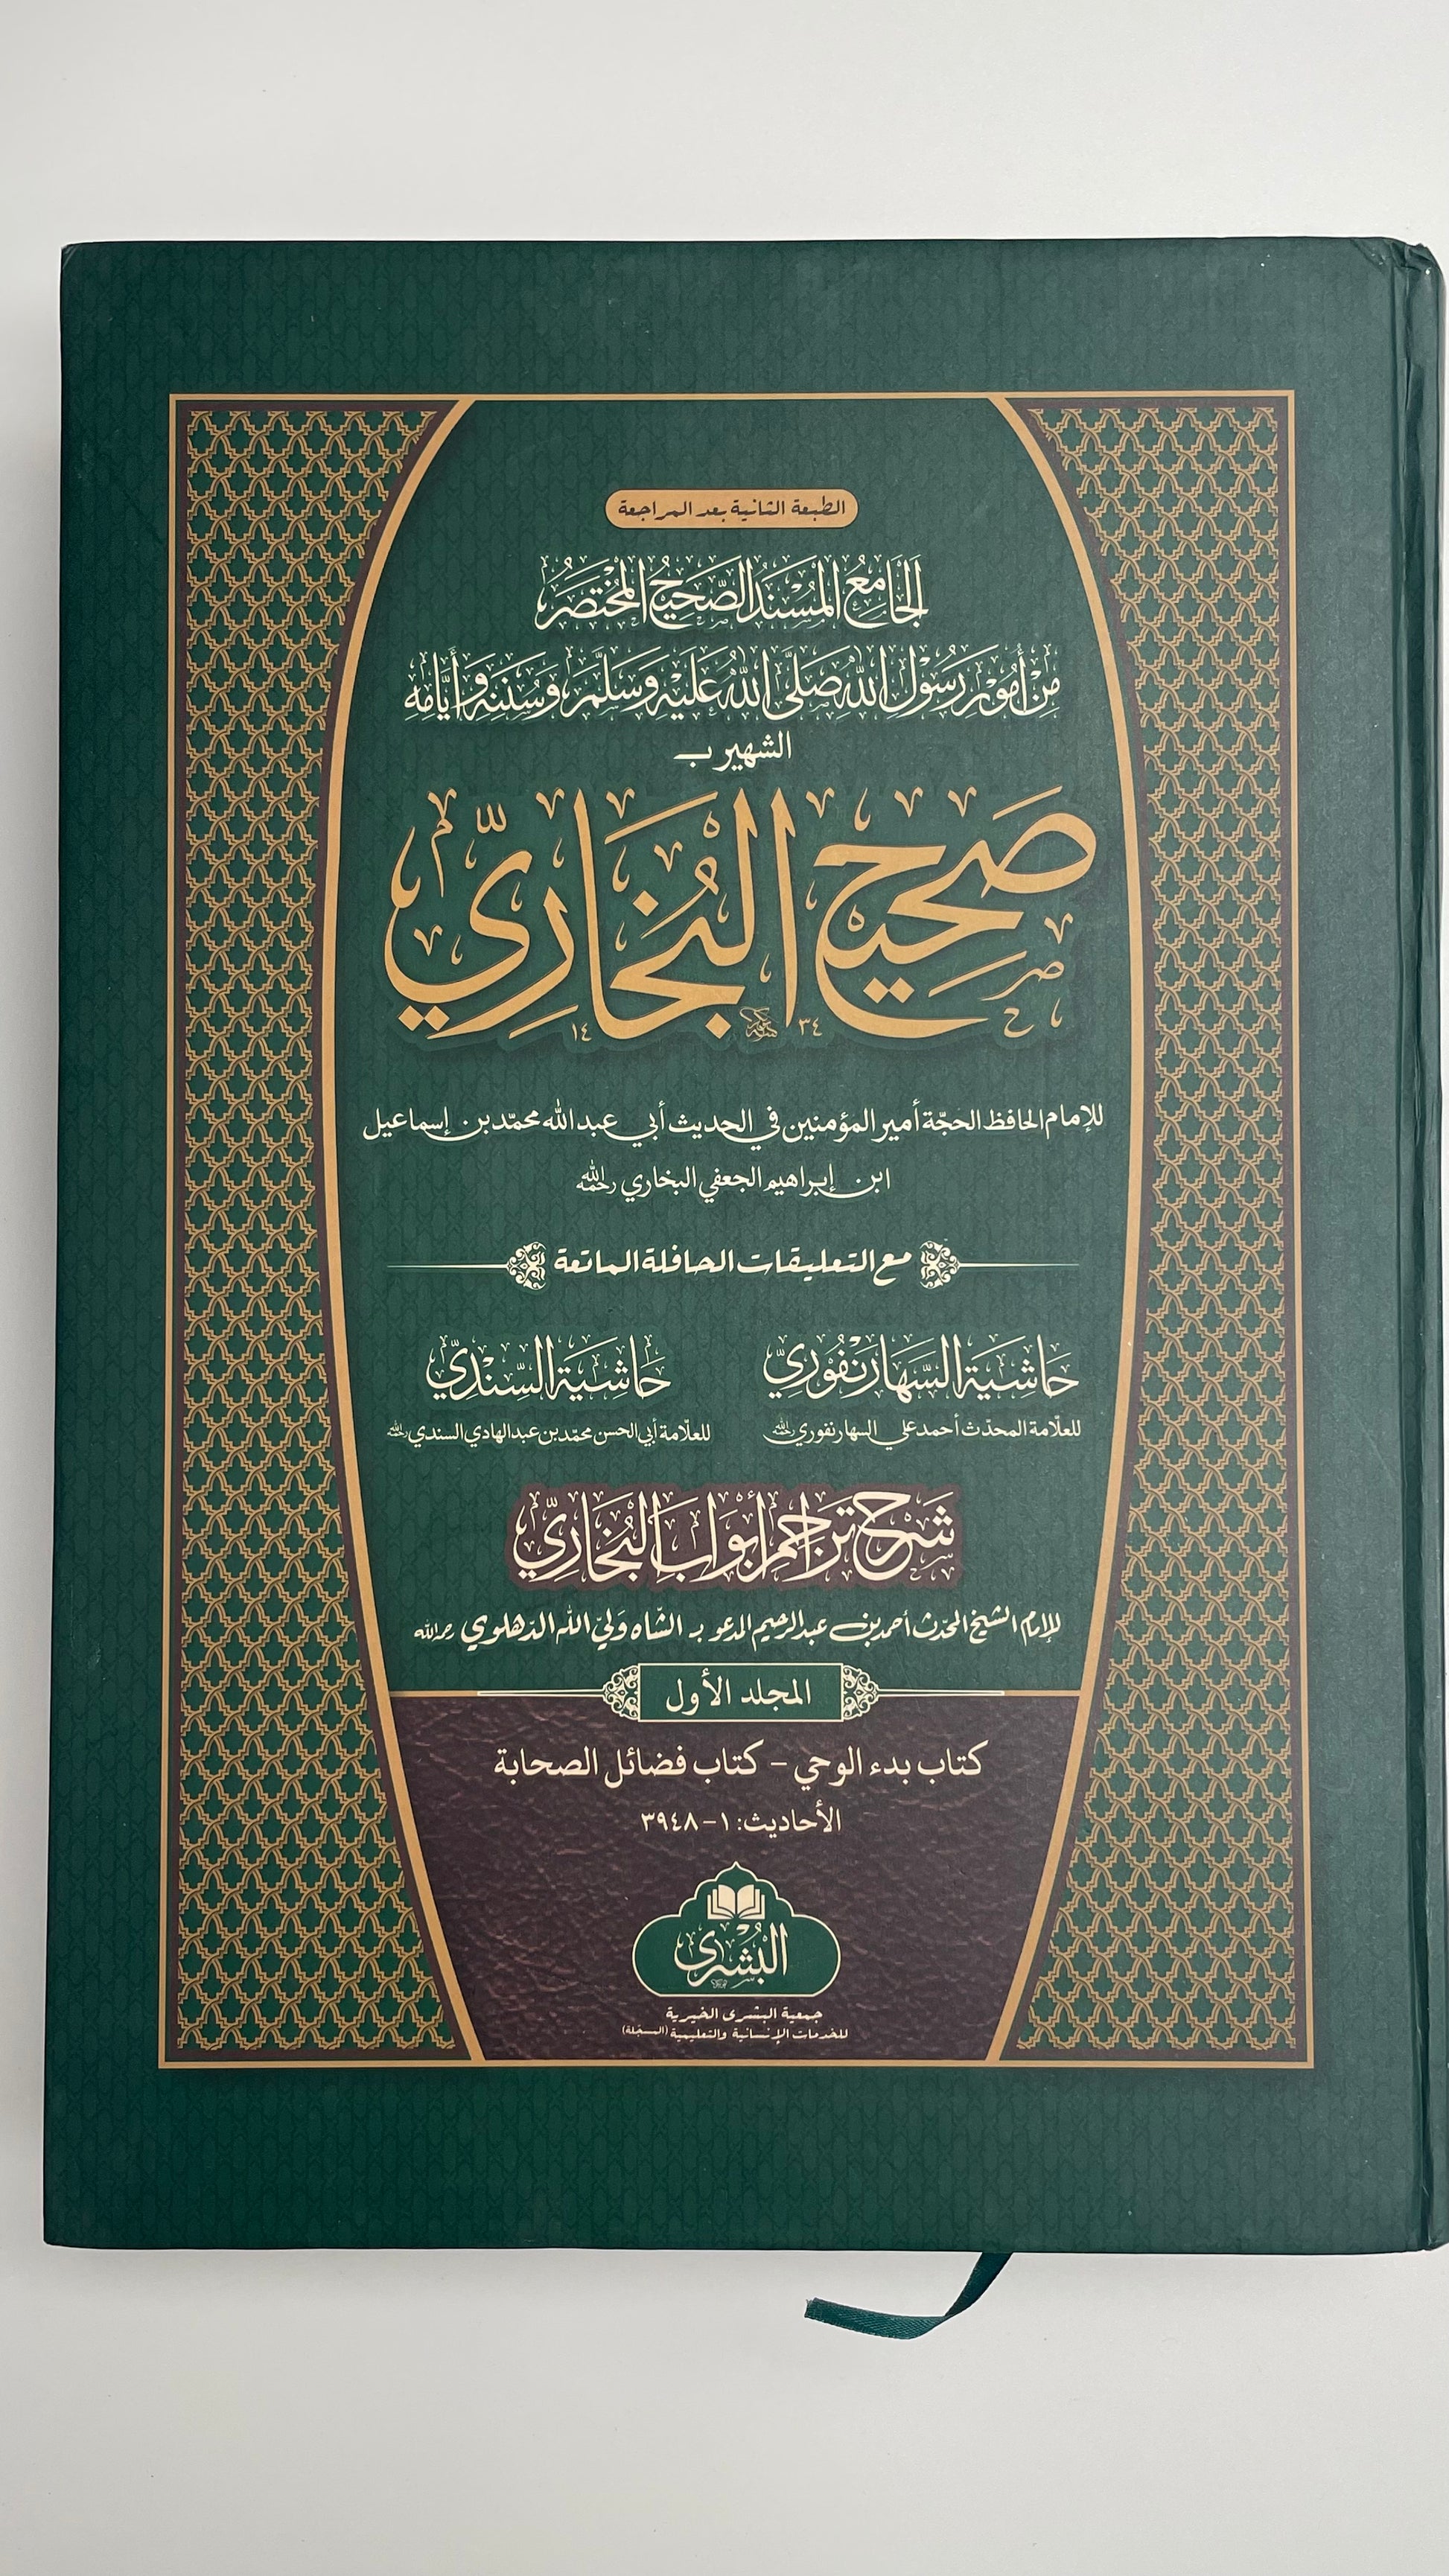 الطبعة الثانية بعد المراجعة
الجَامِعُ المُسْنَدُ الصَّحِيحُ المُخْتَصَرُ
مِنْ أُمُورِ رَسُوْلِ اللهِ صَلَّى اللهُ عَلَيْهِ وَسَلَّمَ وَسُنَنِهِ وَأَيَّامِهِ
الشهير بـ
صَحِيحُ البُخَارِيّ
١٤ ٣٤
للإمام الحافظ الحجّة أمير المؤمنين في الحديث أبي عبد الله محمّد بن إسماعيل
ابن إبراهيم الجعفي البخاري رحمه الله
مع التعليقات الحافلة الماتعة
حَاشِيَة السَّهَارَنْفُورِيّ
للعلّامة المحدّث أحمد علي السهارنفوري رحمه الله
حَاشِيَة السِّنْدِيّ
للعلّامة أبي الحسن محمّد بن عبد الهادي السندي رحمه الله
شَرْح تَرَاجِم أَبْوَاب البُخَارِيّ
للإمام الشيخ المحدّث أحمد بن عبد الرحيم المدعو بـ الشّاه وَليّ الله الدّهلوي رحمه الله
المجلد الأول
كتاب بدء الوحي – كتاب فضائل الصحابة
الأحاديث: ١ – ٣٩٤٨
البُشْرى
جمعية البشرى الخيرية
للخدمات الإنسانية والتعليمية (المسجّلة)